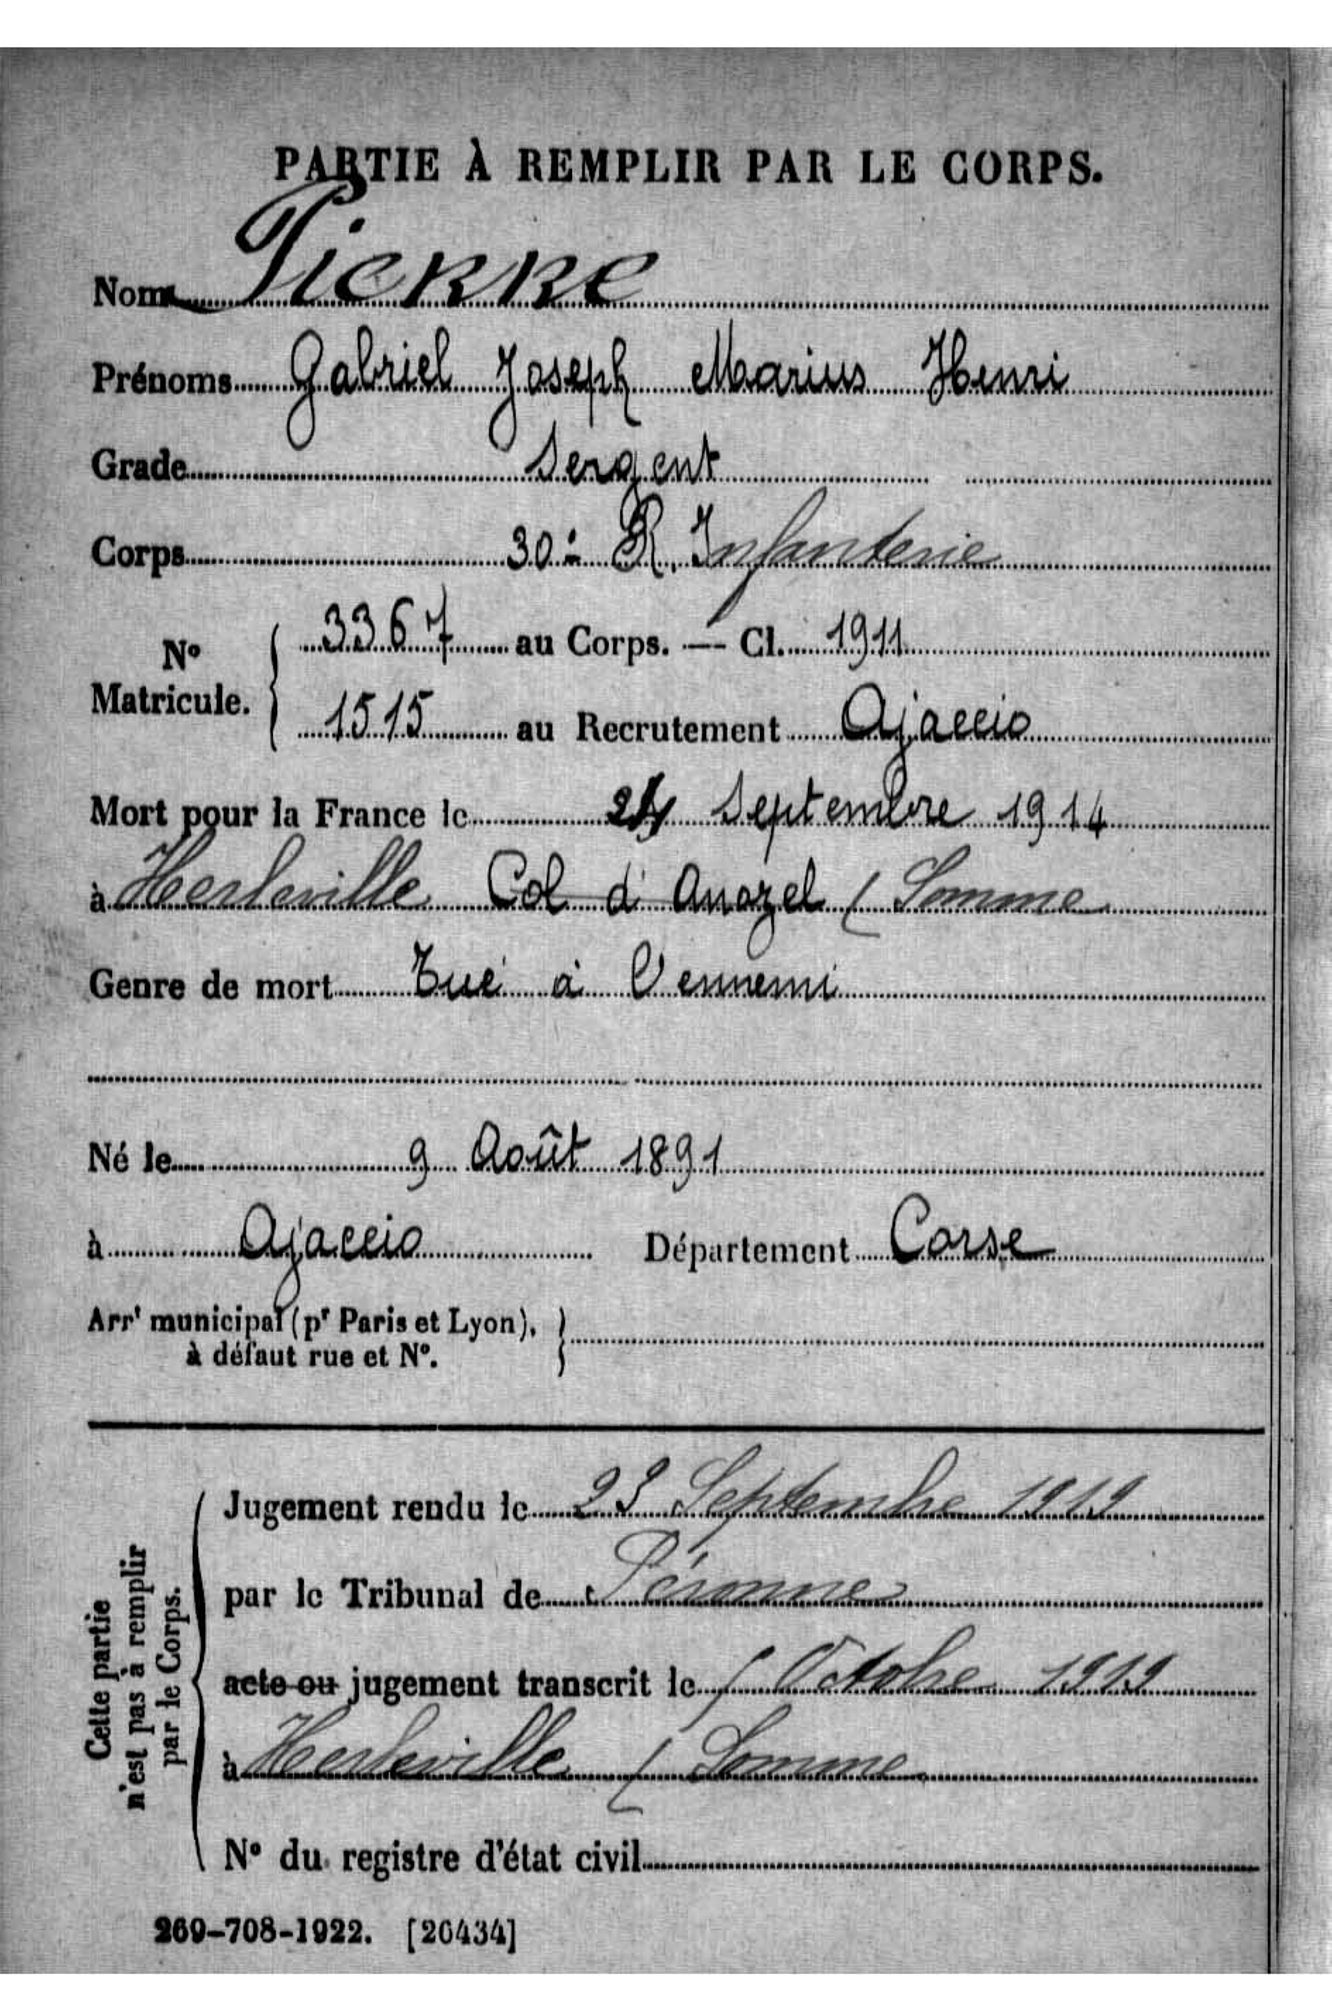 PARTIE À REMPLIR PAR LE CORPS.
Nom Pierre
Prénoms Gabriel Joseph Marius Henri
Grade Sergent
Corps 30e R. Infanterie
N° Matricule. { 3367 au Corps. — Cl. 1911
1515 au Recrutement Ajaccio
Mort pour la France le Septembre 1914
à Herleville Col d'Anozel (Somme
Genre de mort Tué à l'ennemi
Né le 9 Août 1891
à Ajaccio Département Corse
Arrt municipal (pr Paris et Lyon),
à défaut rue et N°.
Cette partie
n'est pas à remplir
par le Corps.
Jugement rendu le 23 Septembre 1919
par le Tribunal de Péronne
acte ou jugement transcrit le Octobre 1919
à Herleville (Somme
N° du registre d'état civil
269-708-1922. [26434]